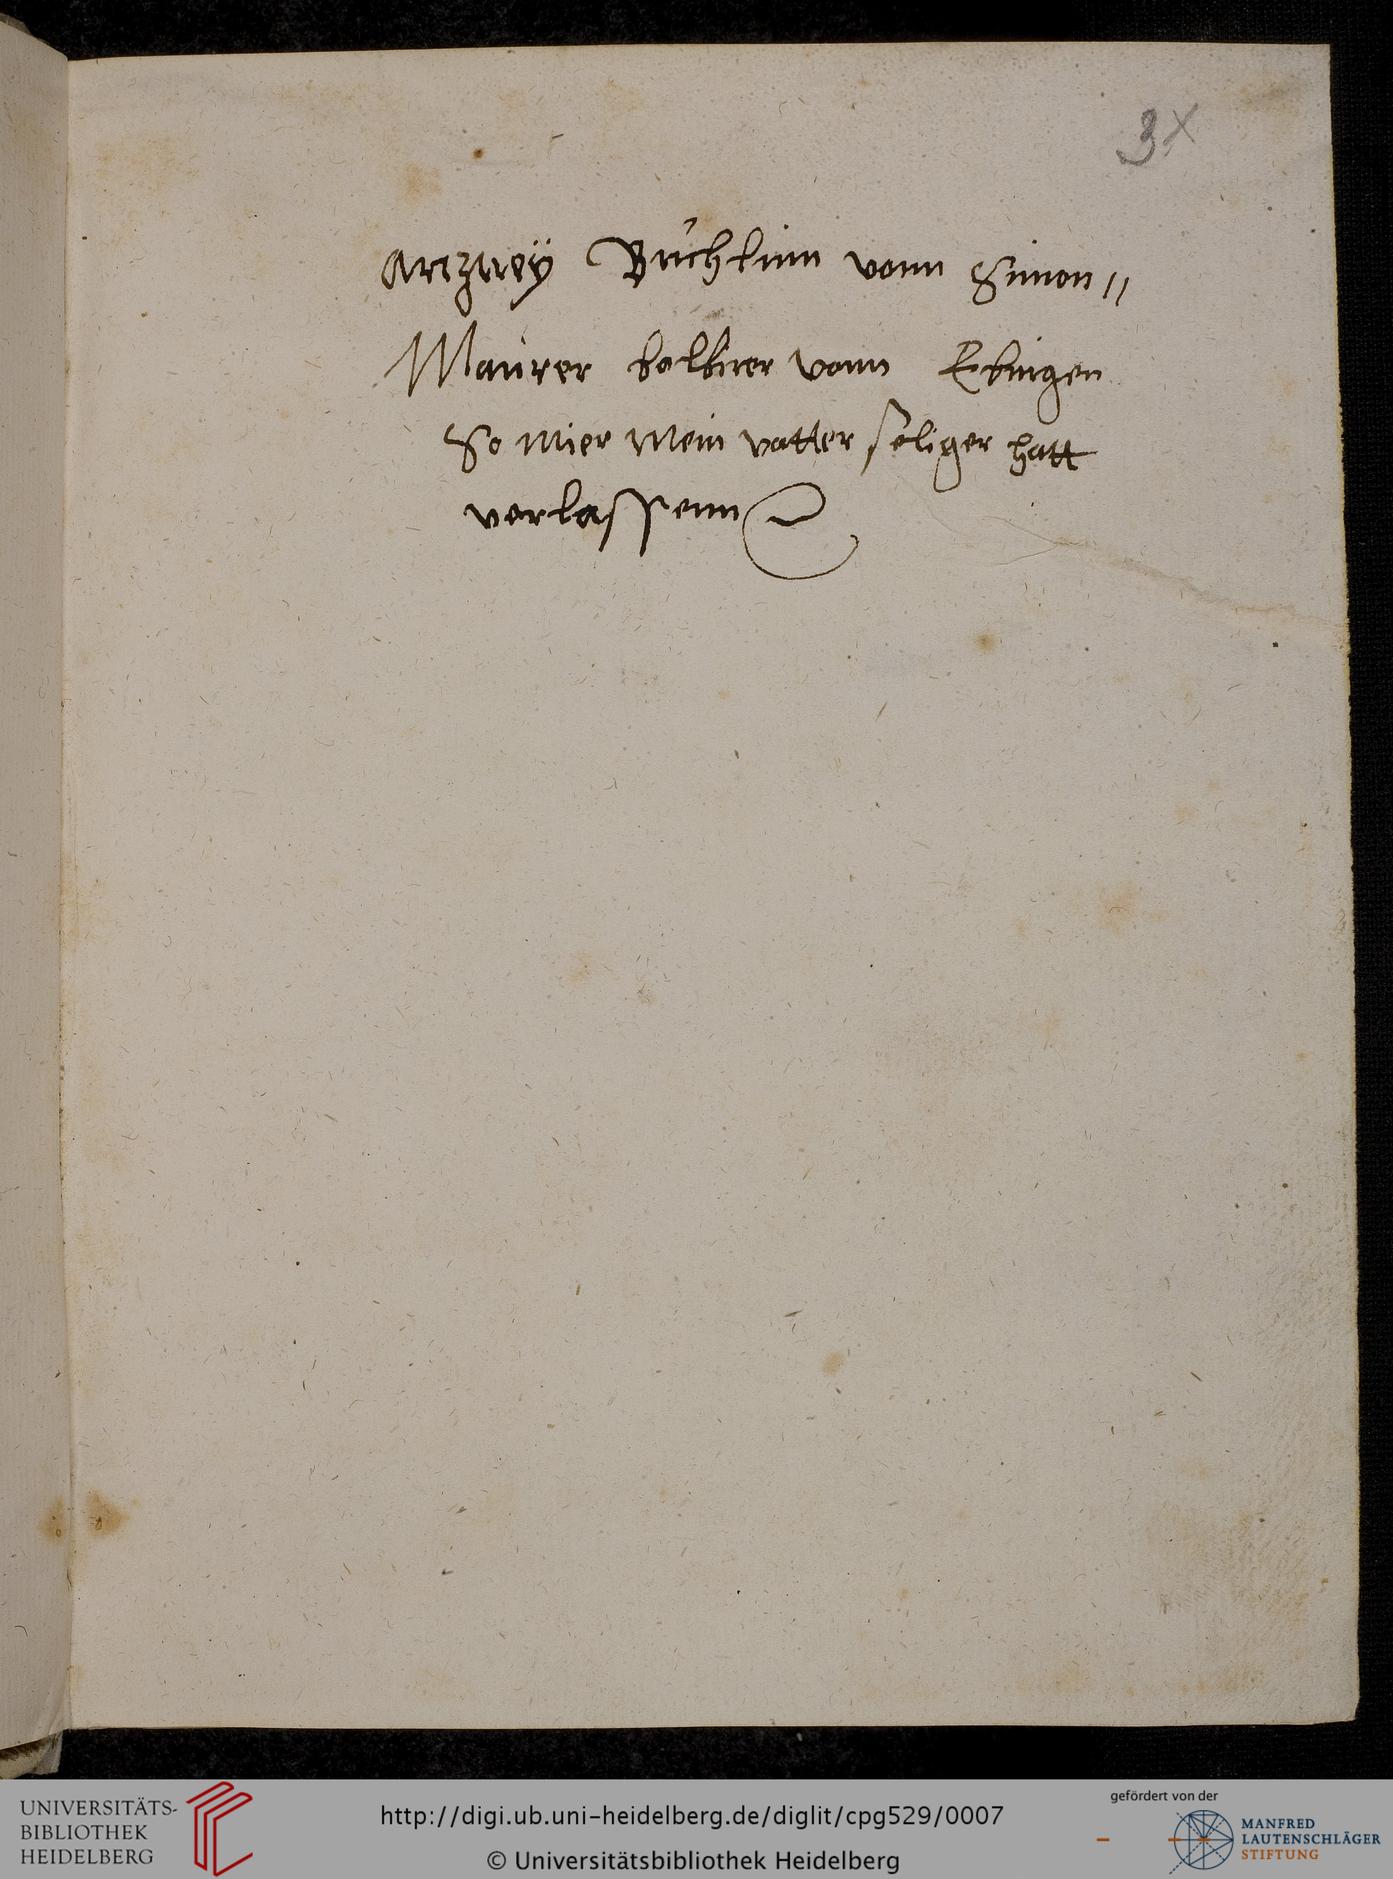 3x
Artzney Büchlinn vonn Simon//
Maürer balbirer vonn Ebingen
So mier mein vatter seliger hatt
verlassenn
UNIVERSITÄTS-
BIBLIOTHEK
HEIDELBERG
http://digi.ub.uni-heidelberg.de/diglit/cpg529/0007
© Universitätsbibliothek Heidelberg
gefördert von der
MANFRED
LAUTENSCHLÄGER
STIFTUNG